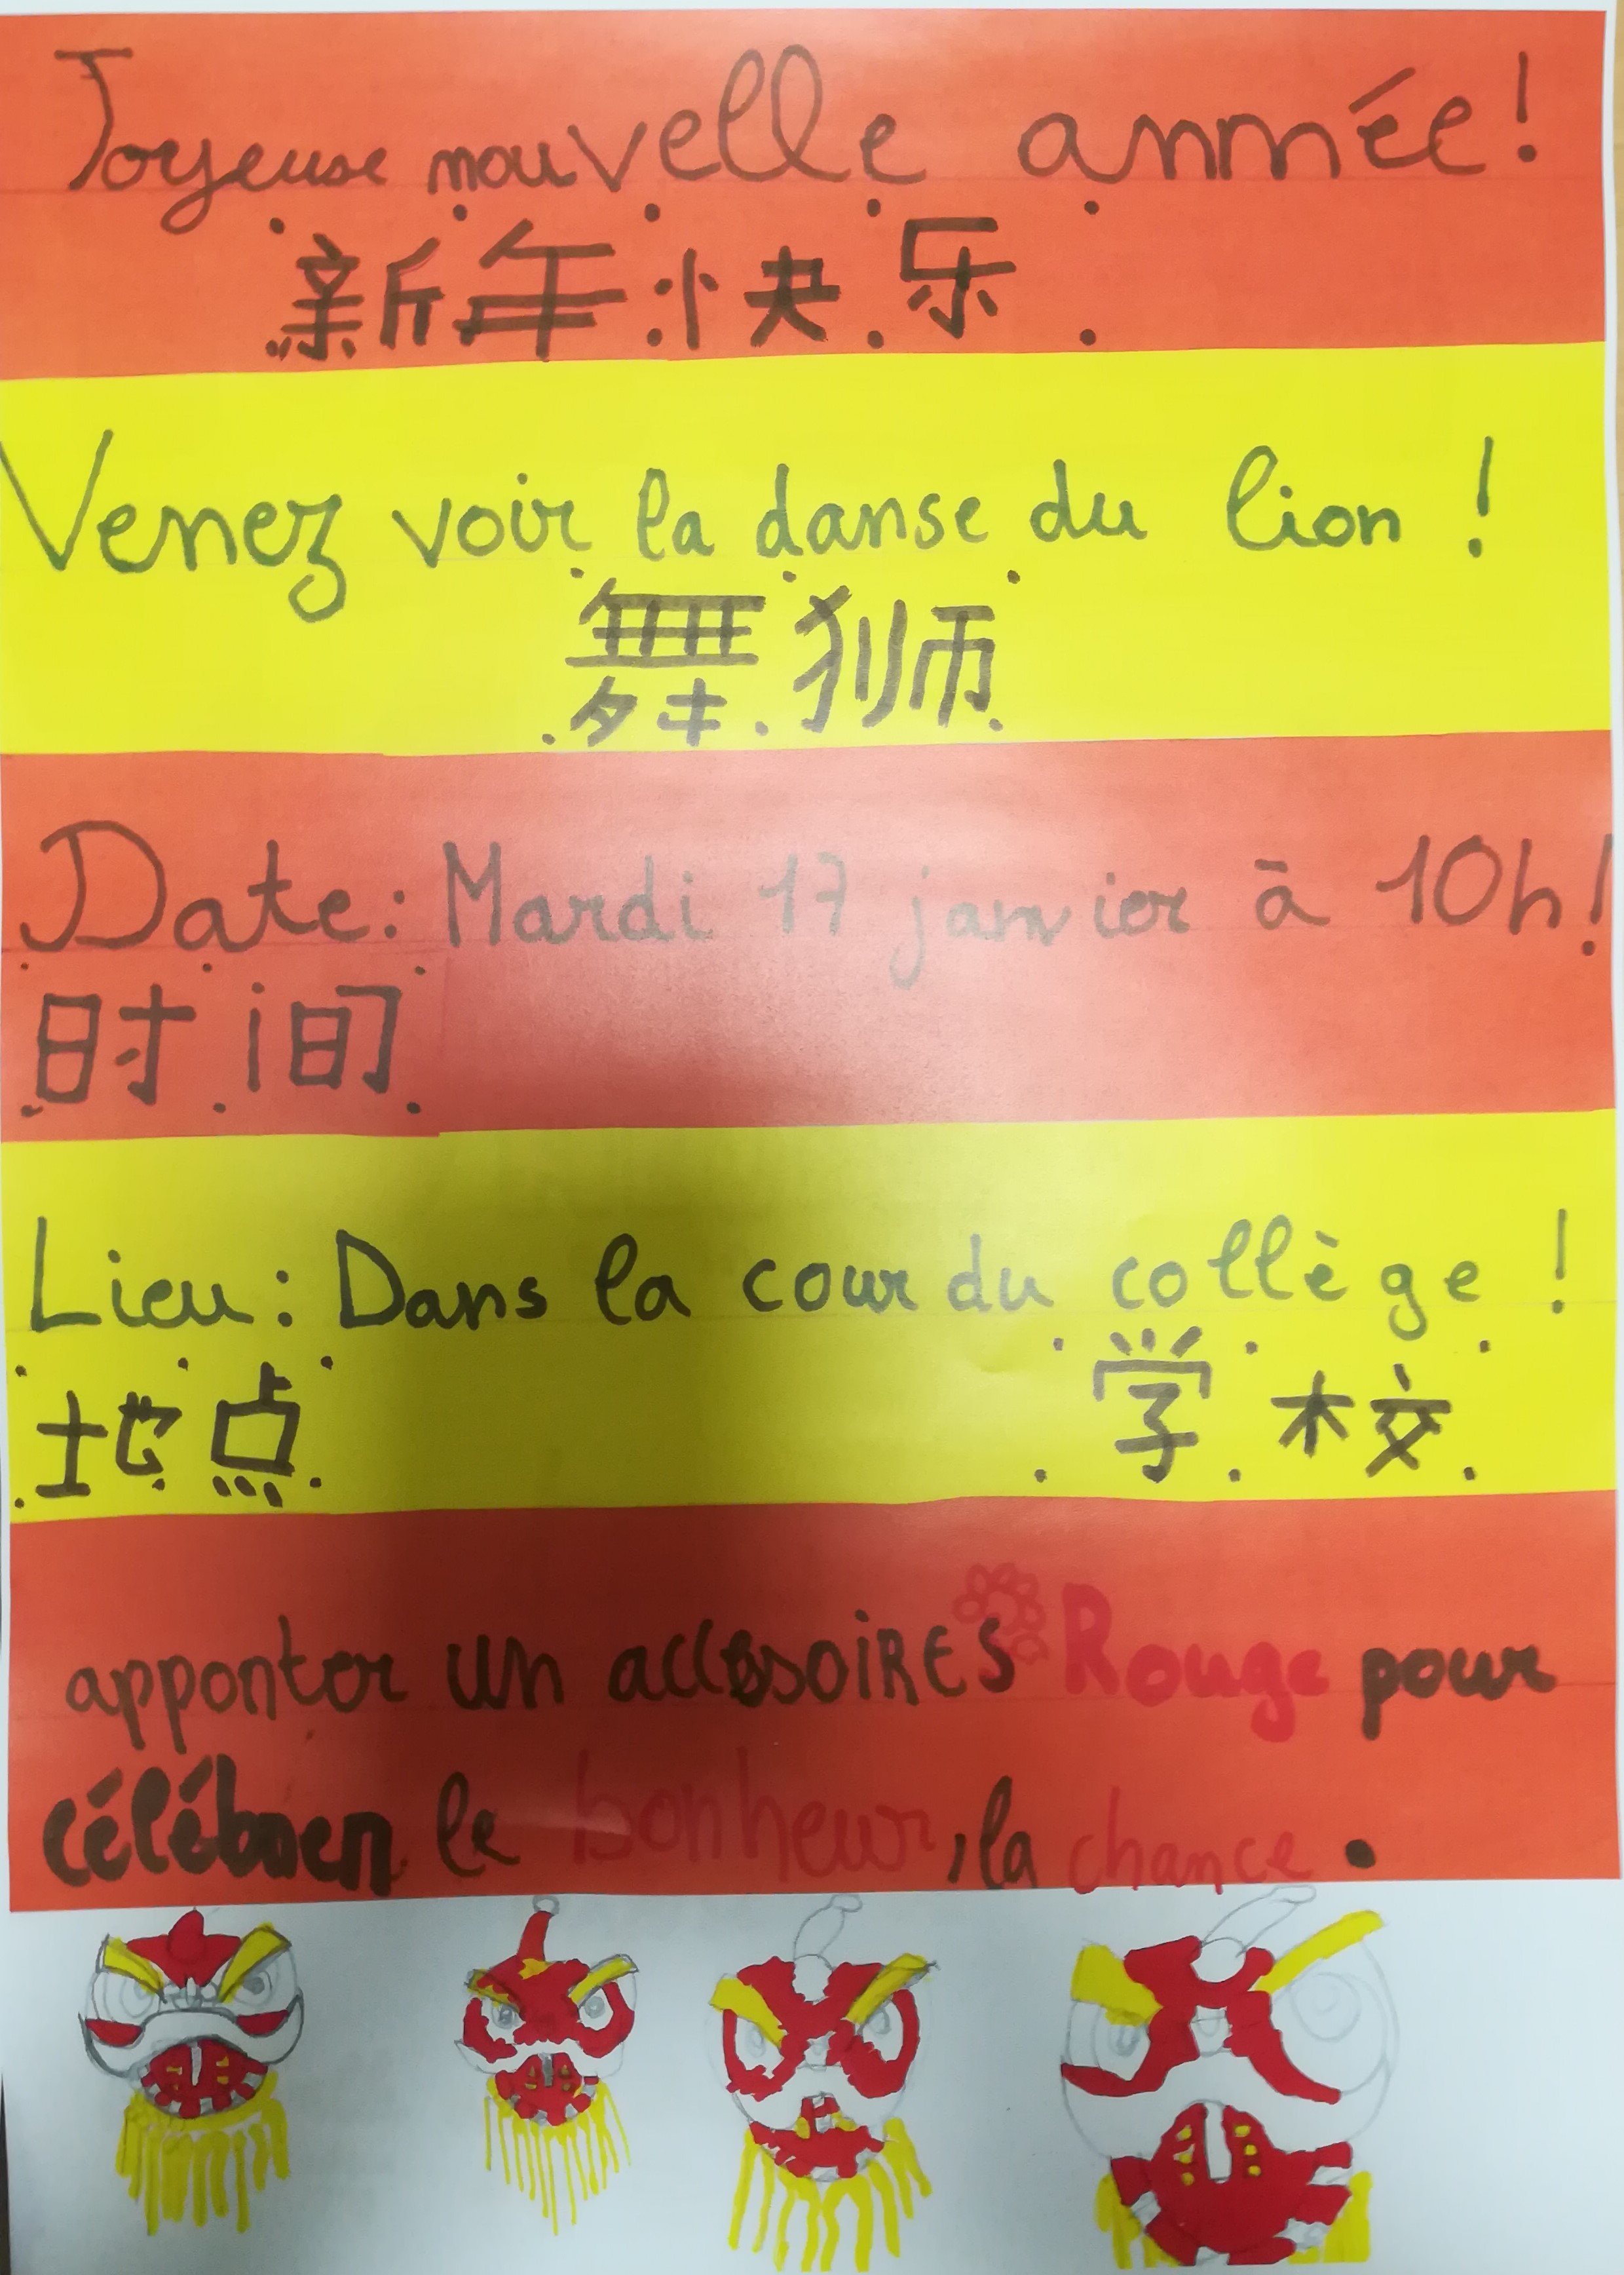 Joyeuse nouvelle année!
新年快乐
Venez voir la danse du lion !
舞狮
Date: Mardi 17 janvier à 10h!
时间
Lieu: Dans la cour du collège !
地点 学校
apporter un accessoiRES Rouge pour
célébrer le bonheur, la chance.